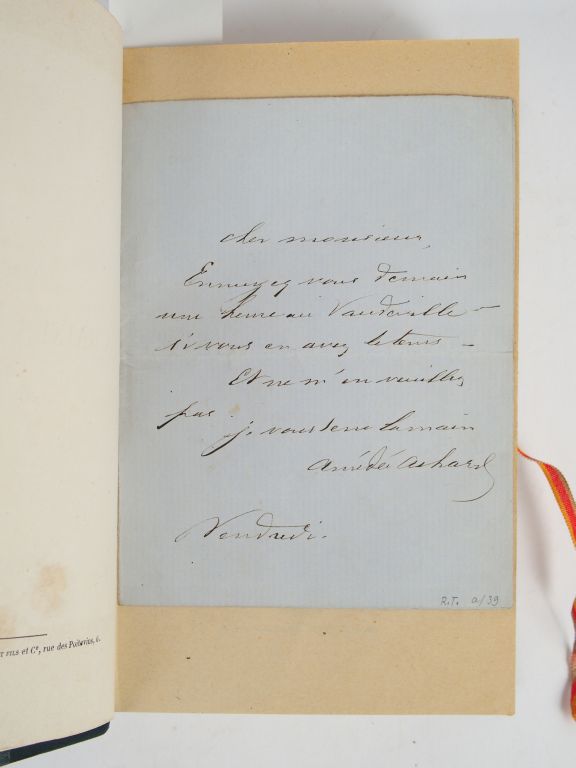 cher monsieur,
Ennuyez vous demain
une heure au Vaudeville –
si vous en avez le tems –
Et ne m'en veuillez
pas.
je vous serre la main
Amédée Achard
Vendredi.
R.T. a/39
et Cie, rue des Poitevins, 6.